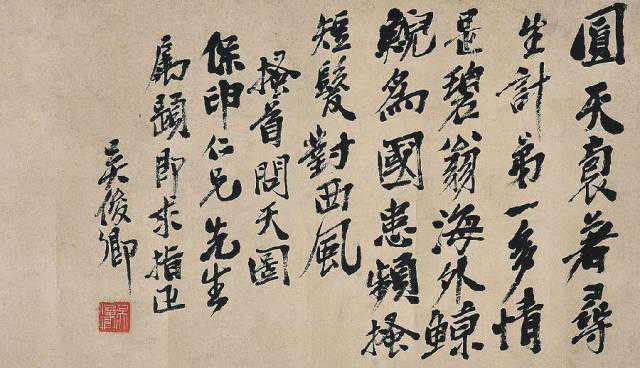 圓天裹著尋
生計弟一多情
是碧翁海外鯨
鯢為國患頻搔
短髮對西風
搔首問天圖
保印仁兄先生
屬題即求指正
吳俊卿